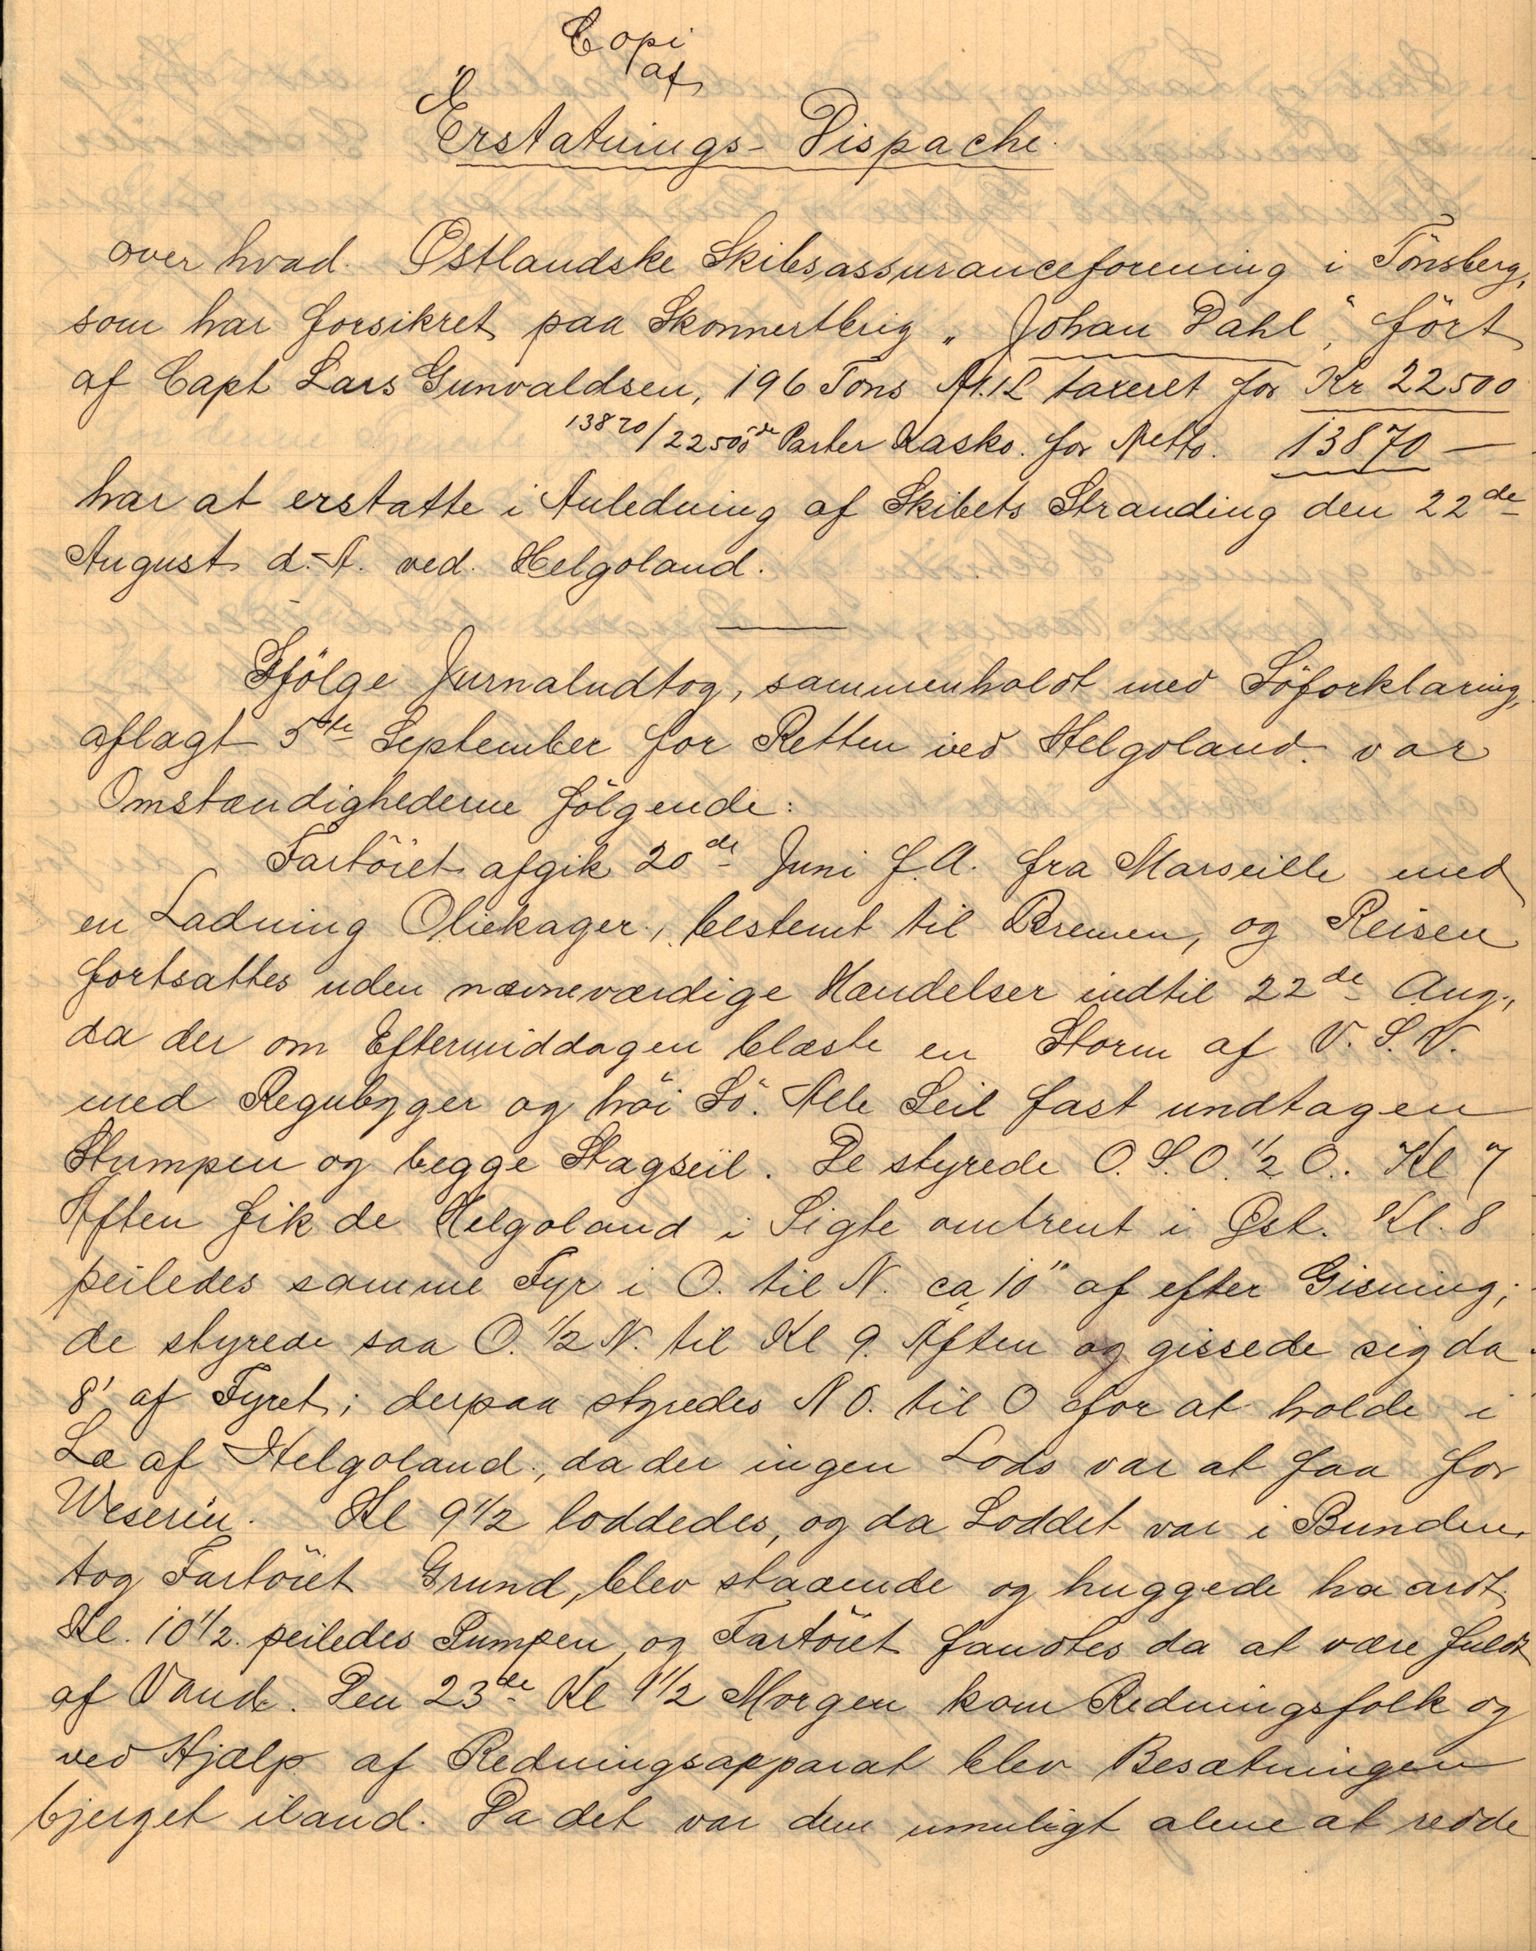 Copi
af
Erstatnings-Dispache.
over hvad Østlandske Skibsassuranceforening i Tönsberg,
som har forsikret paa Skonnertbrig „Johan Dahl", fört
af Capt Lars Gunvaldsen, 196 Tons A1.1L taxeret for Kr 22500
13870/22500de Parter Kasko. for Netto. 13870 —
har at erstatte i Anledning af Skibets Stranding den 22de
August d.A. ved Helgoland.
Ifölge Jurnaludtog, sammenholdt med Söforklaring,
aflagt 5te September for Retten ved Helgoland var
Omstændighederne fölgende:
Fartöiet afgik 20de Juni f.A. fra Marseille med
en Ladning Oliekager, bestemt til Bremen, og Reisen
fortsattes uden nævneværdige Hændelser indtil 22de Aug.,
da der om Eftermiddagen blæste en Storm af V.S.V.
med Regnbyger og höi Sö. Alle Seil fast undtagen
Stumpen og begge Stagseil. De styrede O.S.O.½O. Kl 7
Aften fik de Helgoland i Sigte omtrent i Øst. Kl. 8
peiledes samme Fyr i O. til N. ca 10" af efter Gisning;
de styrede saa O.½N. til Kl 9 Aften og gissede sig da
8' af Fyret; derpaa styredes NO. til O for at holde i
Læ af Helgoland, da der ingen Lods var at faa for
Weseren. Kl 9½ loddedes, og da Loddet var i Bunden,
tog Fartöiet Grund, blev staaende og huggede haardt.
Kl. 10½ peiledes Pumpen, og Fartöiet fandtes da at være fuldt
af Vand. Den 23de Kl 1½ Morgen kom Redningsfolk og
ved Hjælp af Redningsapparat blev Besætningen
bjerget iland. Da det var dem umuligt alene at redde